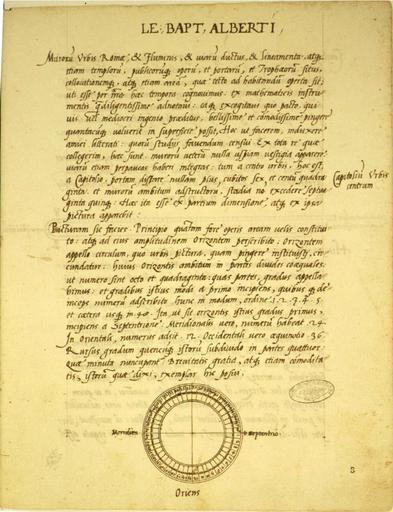 LE. BAPT. ALBERTI,
Murorū Urbis Romæ, & Fluminis, & viarū ductus, & lineamenta, atq.
etiam templorū, publicorūq. operū, et portarū, et Trophæorū situs,
collocationemq. atq. etiam aream, quæ tecto ad habitandū operta sit;
uti esse per hæc tempora cognovimus. ex mathematicis instru-
mentis q̄diligentissime adnotavi: atq. excogitavi quo pacto, qui-
vis vel mediocri ingenio præditus, bellissime et comodissime pingere
quantacūq. voluerit in superficie possit. Hoc ut facerem, induxere
amici literati: quorū studijs favendum censui. Ex tota re quæ
collegerim, hæc sunt. murorū veterū nulla uspiam vestigia apparere
viarū etiam perpaucas haberi integras: tum a centro urbis, hoc est,
a Capitolio, portam distare nullam plus, cubitos sex et centū quadra
ginta: et murorū ambitum adstructorū, stadia no excedere septua
ginta quinq. Hæc ita esse ex partium dimensione, atq. ex ipsa
pictura apparebit.
Capitoliū Urbis
centrum
Picturam sic facies. Principio quātam fore operis aream velis constitui
to: atq. ad eius amplitudinem Orizontem perscribito. Orizontem
appello circulum, quo urbis pictura, quam pingere instituisti, cir
cundatur: huius Orizontis ambitum in partes divides coæquales:
ut numero sint octo et quadraginta: quas partes, gradus appella
bimus: et gradibus istius modi a primo incipiens, quibus q. de
inceps numerū adscribito hunc in modum, ordine 1. 2. 3. 4. 5.
et cætera usq. in 48. Ita ut sit orizontis istius gradus primus,
incipiens a Septentrione. Meridionalis vero, numerū habeat 24.
In orientali, numerus adsit. 12. Occidentali vero æquinotio. 36.
Rursus gradum quencūq. istorū subdivido in partes quattuor:
Quæ minuta nuncupent Brevitatis gratia, atq. etiam comodita
tis, istorū quæ dixi, exemplar hic posui.
Meridies
Septentrio
Oriens
8